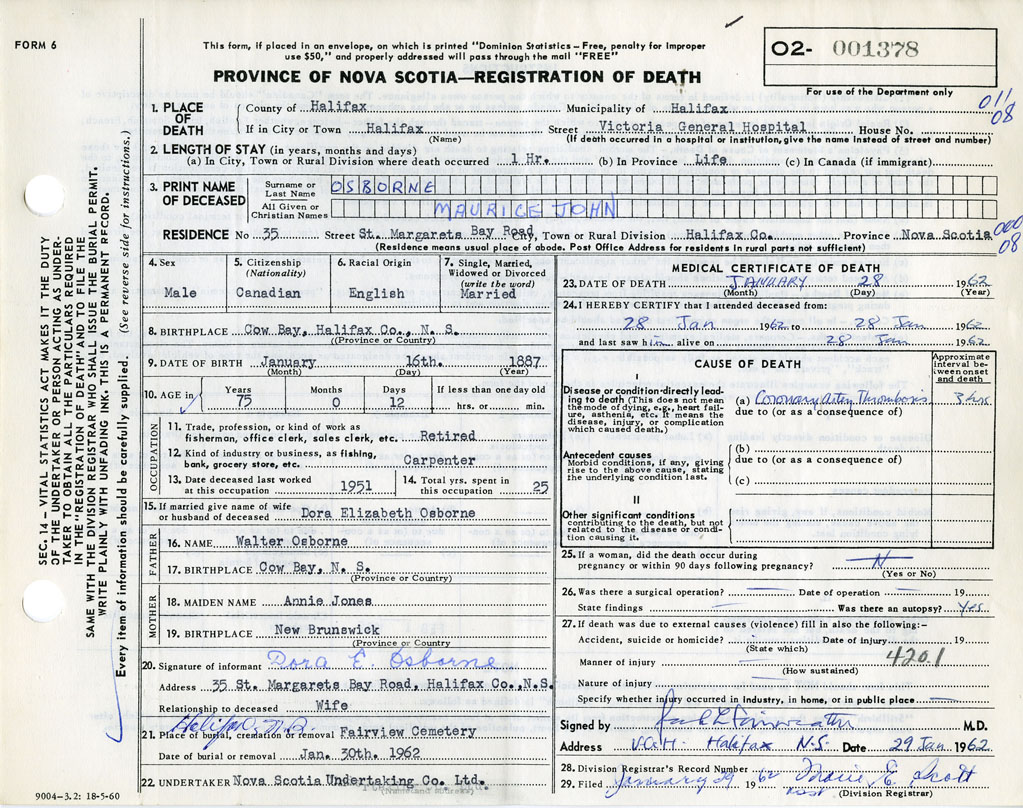 FORM 6
This form, if placed in an envelope, on which is printed "Dominion Statistics – Free, penalty for improper
use $50," and properly addressed will pass through the mail "FREE"
PROVINCE OF NOVA SCOTIA—REGISTRATION OF DEATH
02- 001378
For use of the Department only
011
08
1. PLACE OF DEATH
County of Halifax Municipality of Halifax
If in City or Town Halifax Street Victoria General Hospital House No.
(Name) (If death occurred in a hospital or institution, give the name instead of street and number)
2. LENGTH OF STAY (in years, months and days)
(a) In City, Town or Rural Division where death occurred 1 Hr. (b) In Province Life (c) In Canada (if immigrant)
3. PRINT NAME OF DECEASED
Surname or Last Name OSBORNE
All Given or Christian Names MAURICE JOHN
RESIDENCE No 35 Street St. Margarets Bay Road City, Town or Rural Division Halifax Co. Province Nova Scotia
(Residence means usual place of abode. Post Office Address for residents in rural parts not sufficient)
000
08
4. Sex
Male
5. Citizenship
(Nationality)
Canadian
6. Racial Origin
English
7. Single, Married,
Widowed or Divorced
(write the word)
Married
8. BIRTHPLACE Cow Bay, Halifax Co., N. S.
((Province or Country)
9. DATE OF BIRTH January 16th. 1887
(Month) (Day) (Year)
10. AGE in
Years 75
Months 0
Days 12
If less than one day old
hrs. or min.
OCCUPATION
11. Trade, profession, or kind of work as
fisherman, office clerk, sales clerk, etc. Retired
12. Kind of industry or business, as fishing,
bank, grocery store, etc. Carpenter
13. Date deceased last worked
at this occupation 1951
14. Total yrs. spent in
this occupation 25
15. If married give name of wife
or husband of deceased Dora Elizabeth Osborne
FATHER
16. NAME Walter Osborne
17. BIRTHPLACE Cow Bay, N. S.
(Province or Country)
MOTHER
18. MAIDEN NAME Annie Jones
19. BIRTHPLACE New Brunswick
(Province or Country)
20. Signature of informant Dora E. Osborne
Address 35 St. Margarets Bay Road, Halifax Co., N.S.
Relationship to deceased Wife
21. Place of burial, cremation or removal Fairview Cemetery
Date of burial or removal Jan. 30th. 1962
22. UNDERTAKER Nova Scotia Undertaking Co. Ltd.
(Name and address)
9004-3.2: 18-5-60
SEC. 14 – VITAL STATISTICS ACT MAKES IT THE DUTY
OF THE UNDERTAKER OR PERSON ACTING AS UNDER-
TAKER TO OBTAIN ALL THE PARTICULARS REQUIRED
IN THE "REGISTRATION OF DEATH" AND TO FILE THE
SAME WITH THE DIVISION REGISTRAR WHO SHALL ISSUE THE BURIAL PERMIT.
WRITE PLAINLY WITH UNFADING INK. THIS IS A PERMANENT RECORD.
Every item of information should be carefully supplied. (See reverse side for instructions.)
MEDICAL CERTIFICATE OF DEATH
23. DATE OF DEATH JANUARY 28 1962
(Month) (Day) (Year)
24. I HEREBY CERTIFY that I attended deceased from:
28 Jan 1962 to 28 Jan 1962
and last saw him alive on 28 Jan 1962
CAUSE OF DEATH
Approximate
interval be-
tween onset
and death
I
Disease or condition directly lead-
ing to death (This does not mean
the mode of dying, e.g., heart fail-
ure, asthenia, etc. It means the
disease, injury, or complication
which caused death.)
(a) Coronary Artery Thrombosis 3 hrs
due to (or as a consequence of)
Antecedent causes
Morbid conditions, if any, giving
rise to the above cause, stating
the underlying condition last.
(b)
due to (or as a consequence of)
(c)
II
Other significant conditions
contributing to the death, but not
related to the disease or condi-
tion causing it.
25. If a woman, did the death occur during
pregnancy or within 90 days following pregnancy? N
(Yes or No)
26. Was there a surgical operation? — Date of operation — 19
State findings — Was there an autopsy? Yes
27. If death was due to external causes (violence) fill in also the following:-
Accident, suicide or homicide? — Date of injury 19
(State which)
4201
Manner of injury —
(How sustained)
Nature of injury —
Specify whether injury occurred in industry, in home, or in public place —
Signed by M.D.
Address V.G.H. Halifax N.S. Date 29 Jan 1962
28. Division Registrar's Record Number
29. Filed January 29 1962 Marie E. Scott
(Division Registrar)